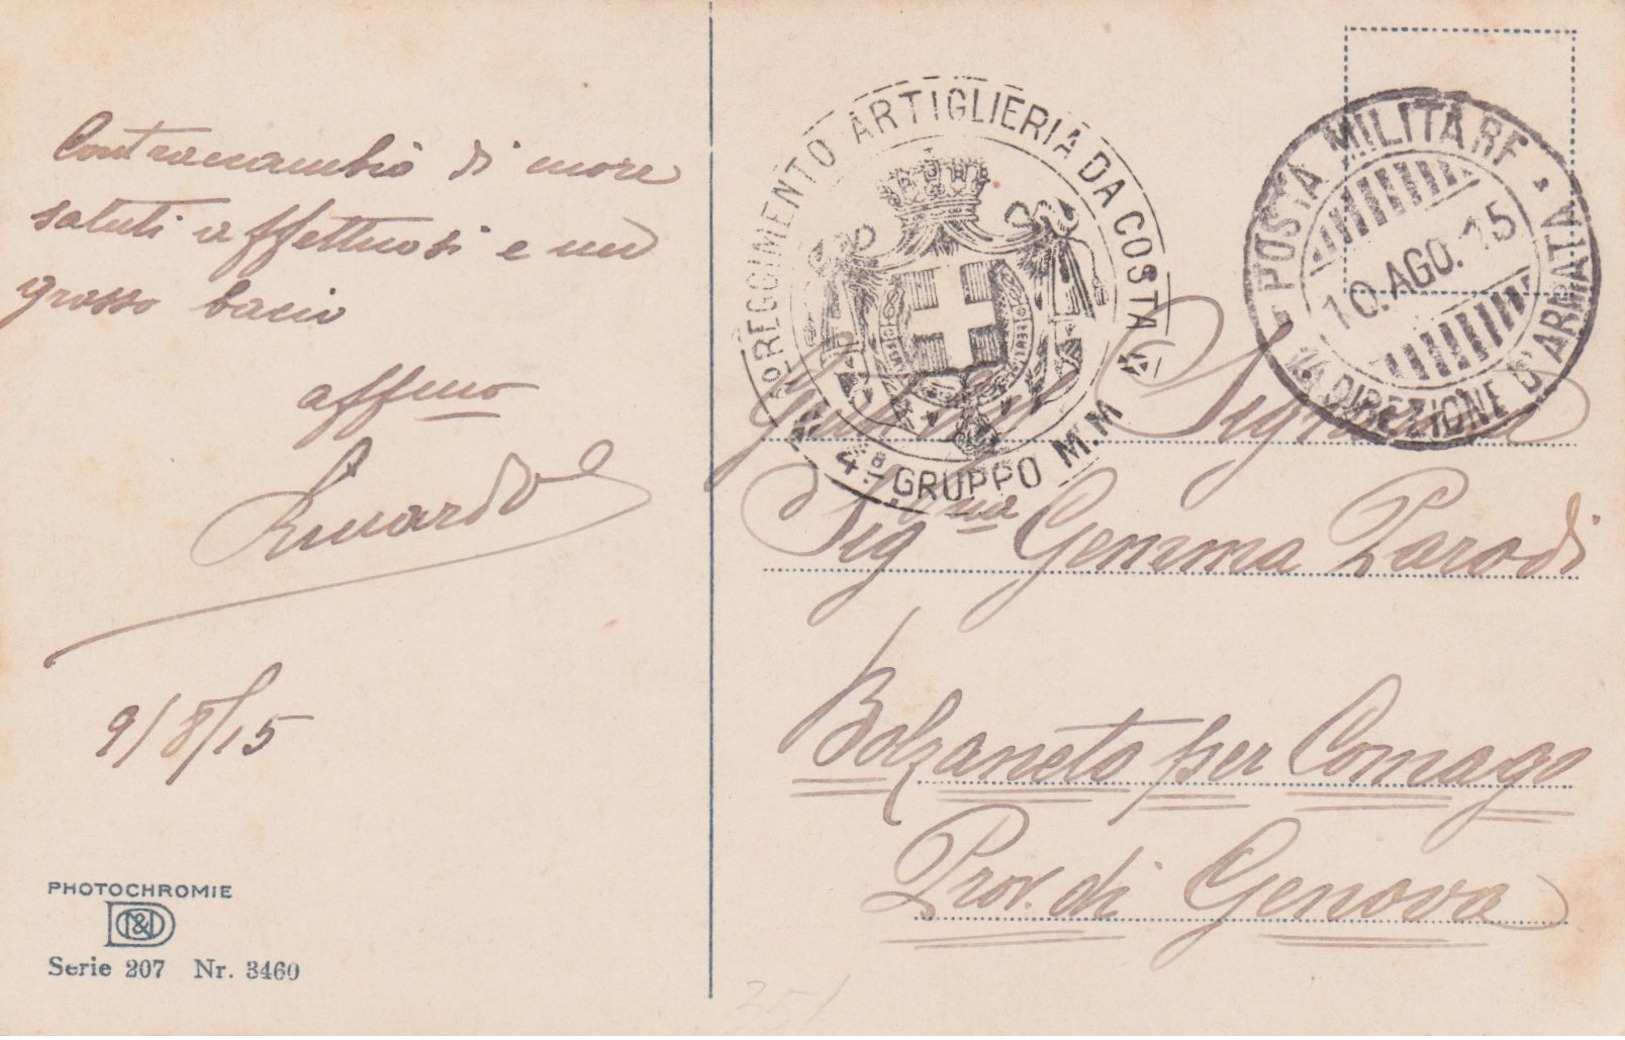 Contraccambio di more
saluti affettuosi e un
grosso bacio
affmo
Riccardo
9/8/15
PHOTOCHROMIE
Serie 207 Nr. 3460
REGGIMENTO ARTIGLIERIA DA COSTA
4º GRUPPO M.M
POSTA MILITARE
10. AGO. 15
1a DIREZIONE D'ARMATA
Gentil Signorina
Sig.na Gemma Parodi
Bolzaneto per Comago
Prov. di Genova